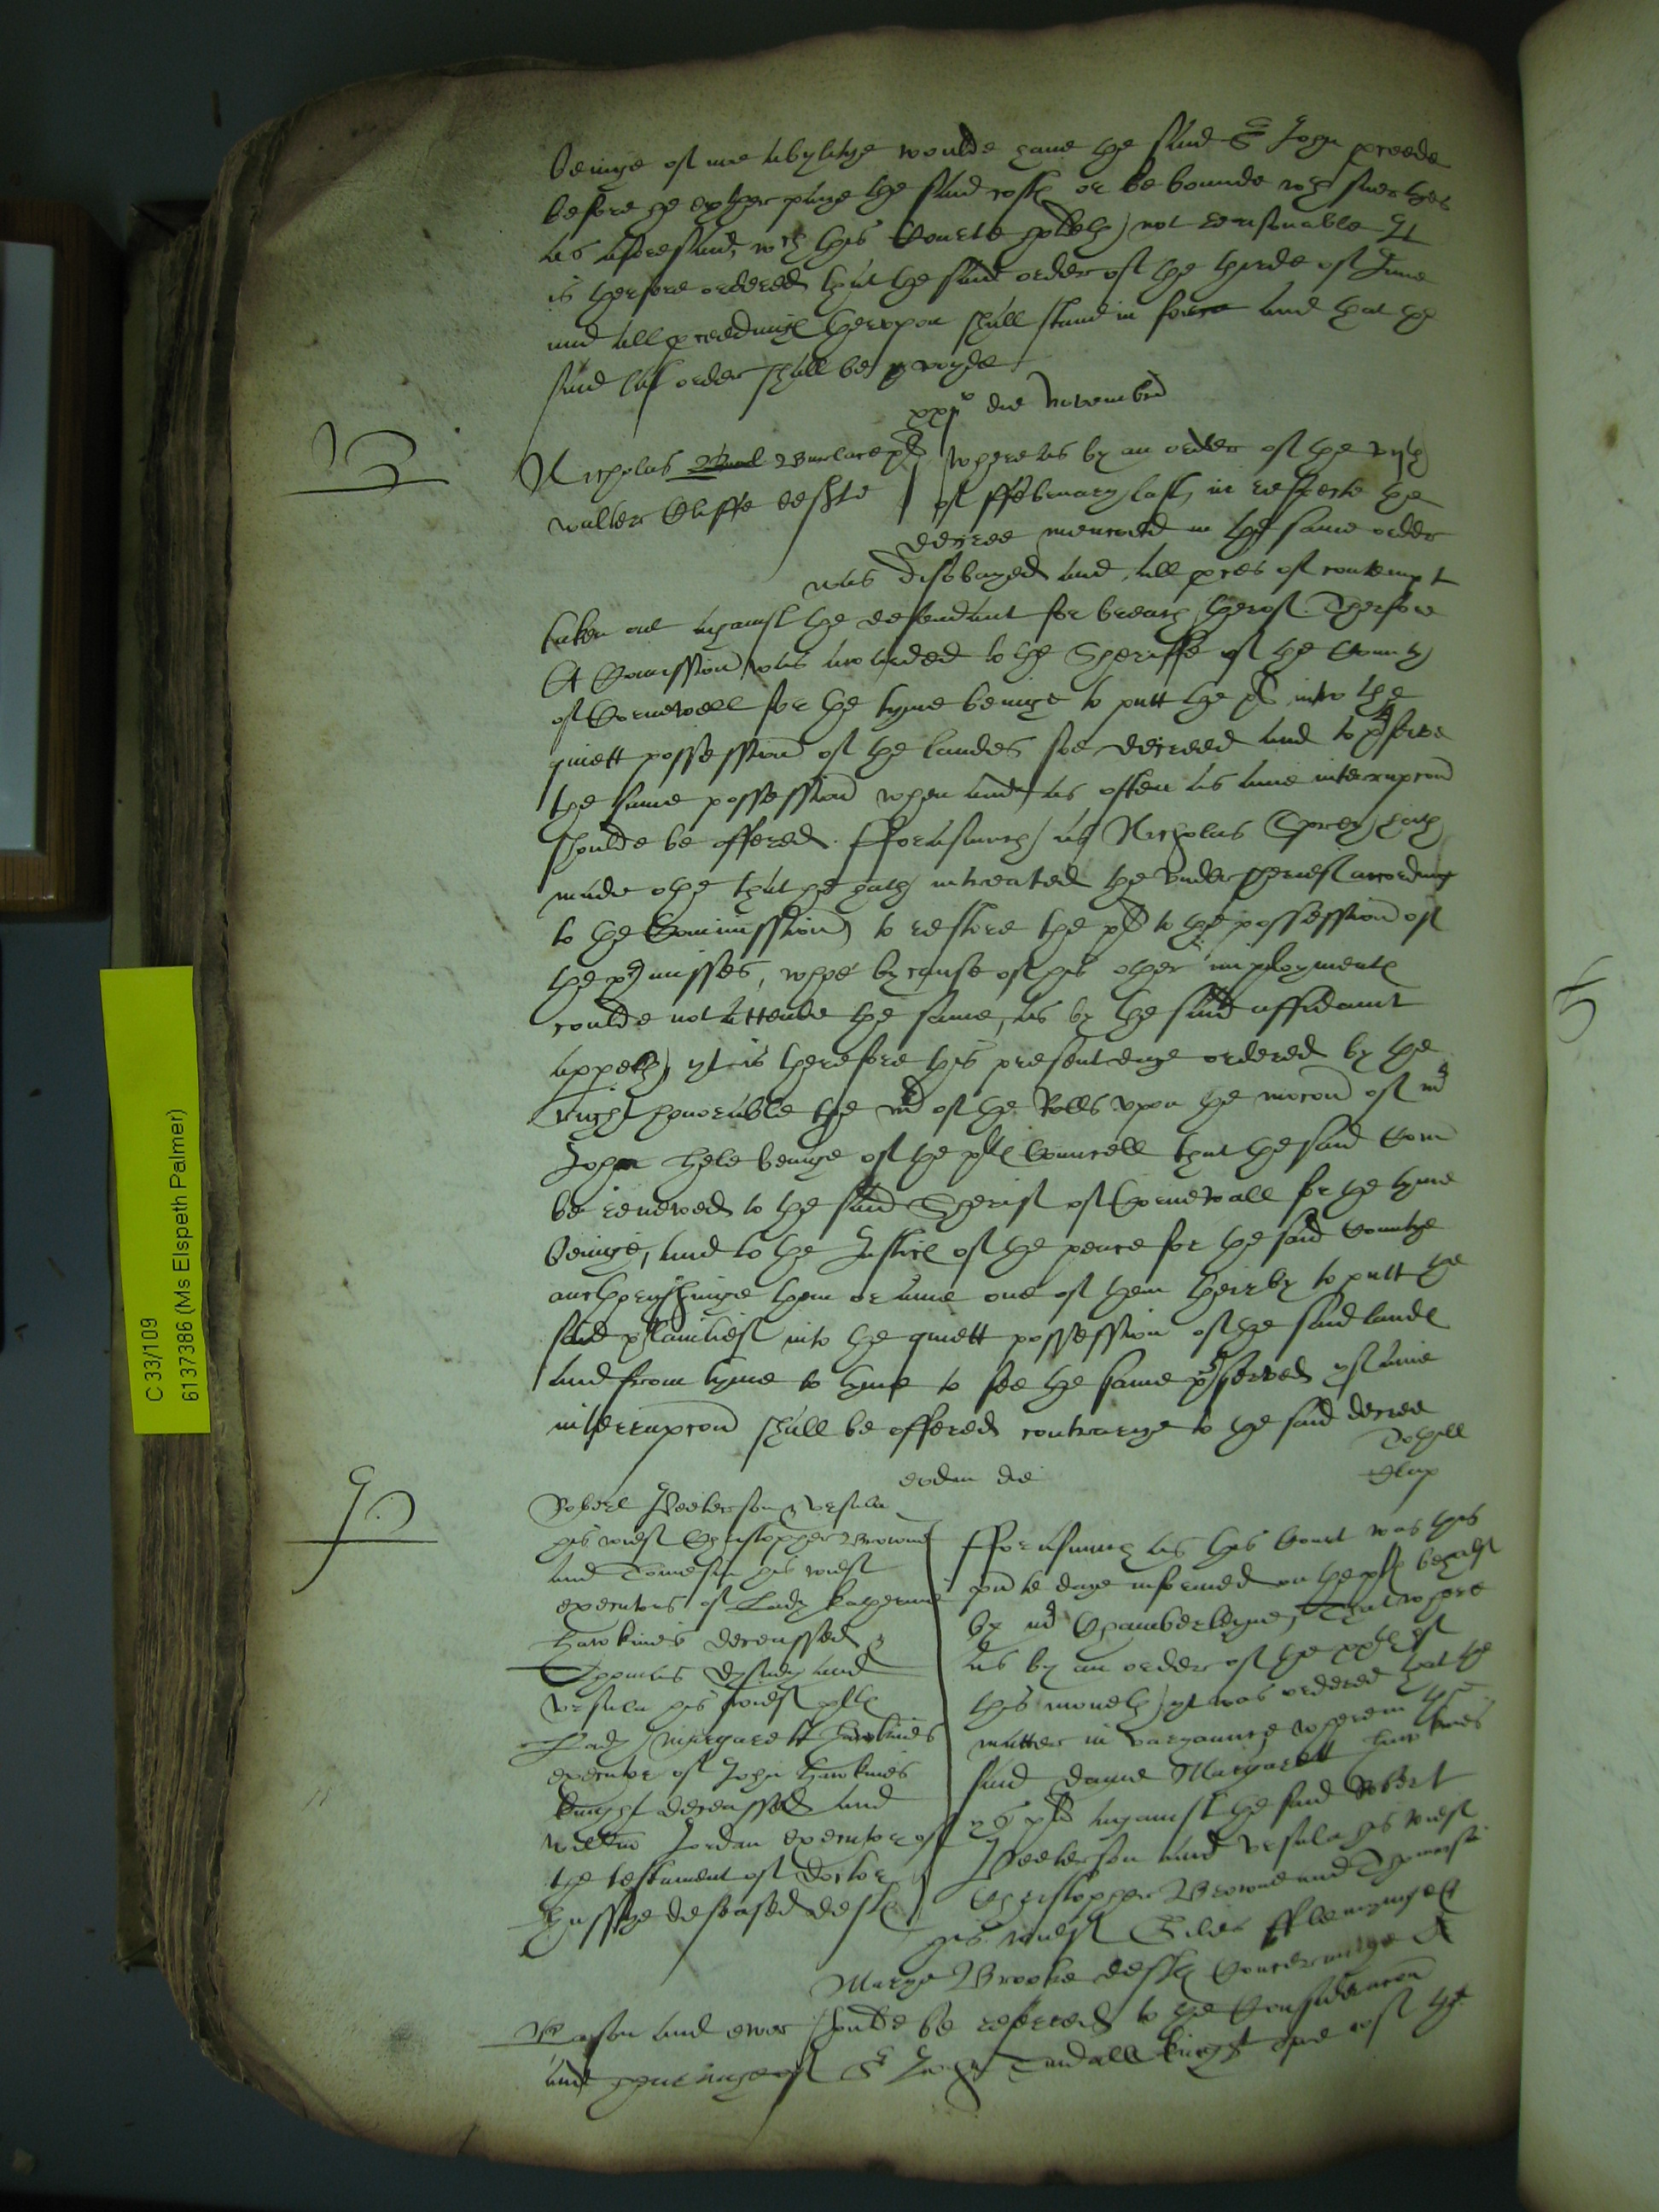 beinge of no abylitye woulde have the said Sr John proceede
before he eyther paye the said costℓ or be bounde wth suerties
as aforesaid, wch this Courte holdeth not reasonable It
is therfore ordered that the said order of the thirde of June
and all proceedingℓ thervpon shall stand in force and that the
said last order shall be voyde
xxjo die Novembr
B
Nicholas Burlace plt
walter Cliffe deffte
whereas by an order of the vijth
of ffebruary last, in respecte the
decree menconed in the same order
was disobayed and all pces of contempt
taken out against the defendant for breach therof. Therfore
A Comission was awarded to the Sheriffe of the County
of Cornewell for the tyme beinge to putt the plt into the
quiett possession of the landes soe decreed and to pserve
the same possession when and as often as anie interrupcon
shoulde be offered. fforasmuch as Nicholas Sprey hath
made othe that he hath intreated the vndersherief according
to the Commission to restore the plt to the possession of
the pmisses, whoe by cause of his other imploymentℓ
coulde not attende the same, as by the said affidavit
appeth, yt is therefore this present daye ordered by the
right honorable the mr of the Rolls vpon the mocon of mr
John hele beinge of the pltℓ Councell that the said Com
be renewed to the said Sherif of Cornewall for the tyme
beinge, and to the Justicℓ of the peace for the said Countye
aucthoryshinge them or anie one of them theirby to putt the
said plaintief into the quiett possession of the said landℓ
and from tyme to tyme to see the same pserved yf anie
interrupcon shall be offered contrarye to the said decree
Tothill
eodem die
P
Robert Peeterson & vrsula
his wief Christopher Browne
and Tomesin his wief
executors of Lady Katherine
Hawkines deceassed &
Thomas and
vrsula his wief pltℓ
Lady Margarett Hawkines
executor of John Hawkines
knight deceassed and
Willm Jordan executor of
the testament of Doctor
Hussye deseased deftℓ
fforasmuch as this Court was this
pnte daye informed on the pltℓ behalf
by mr Chamberleyne, That where
as by an order of the xxth of
this moneth yt was ordered that the
matter in varyaunce wherein the
said dame Margarett Hawkines
ys plt against the said Robert
Peeterson and vrsula his wief
Christopher Browne and Thomasin
his wief Giles fflemynge &
Marye Brooke deftℓ Concerninge A
shoulde be referred to the Consideracon
and hearinge of Sr John Tindall knight one of the
C 33/109
6137386 (Ms Elspeth Palmer)